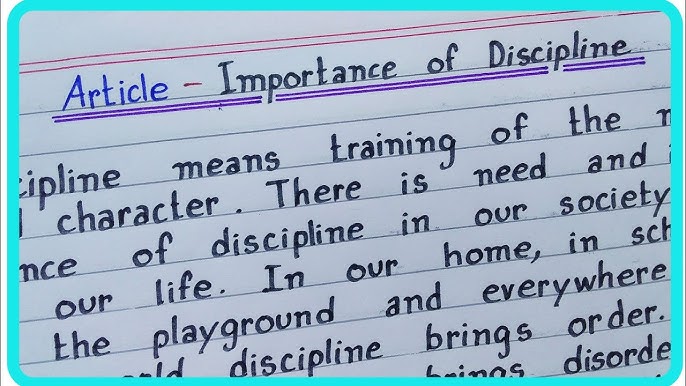 Article - Importance of Discipline
means training of the
character. There is need and
of discipline in our society
our life. In our home, in
the playground and everywhere
discipline brings order.